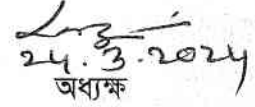 24.3.2024
অধ্যক্ষ